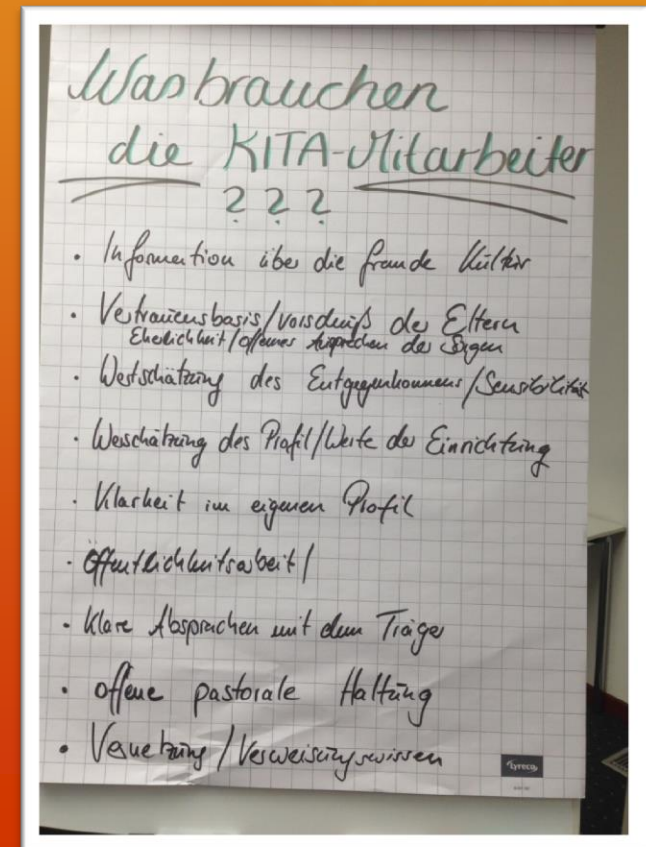 Was brauchen
die KITA-Mitarbeiter
? ? ?
• Information über die fremde Kultur
• Vertrauensbasis/Vorschuß der Eltern
Ehrlichkeit/offenes Ansprechen der Sorgen
• Wertschätzung des Entgegenkommens/Sensibilität
• Wertschätzung des Profil/Werte der Einrichtung
• Klarheit im eigenen Profil
• Öffentlichkeitsarbeit/
• Klare Absprachen mit dem Träger
• offene pastorale Haltung
• Vernetzung/Verweisungswissen
lyreco